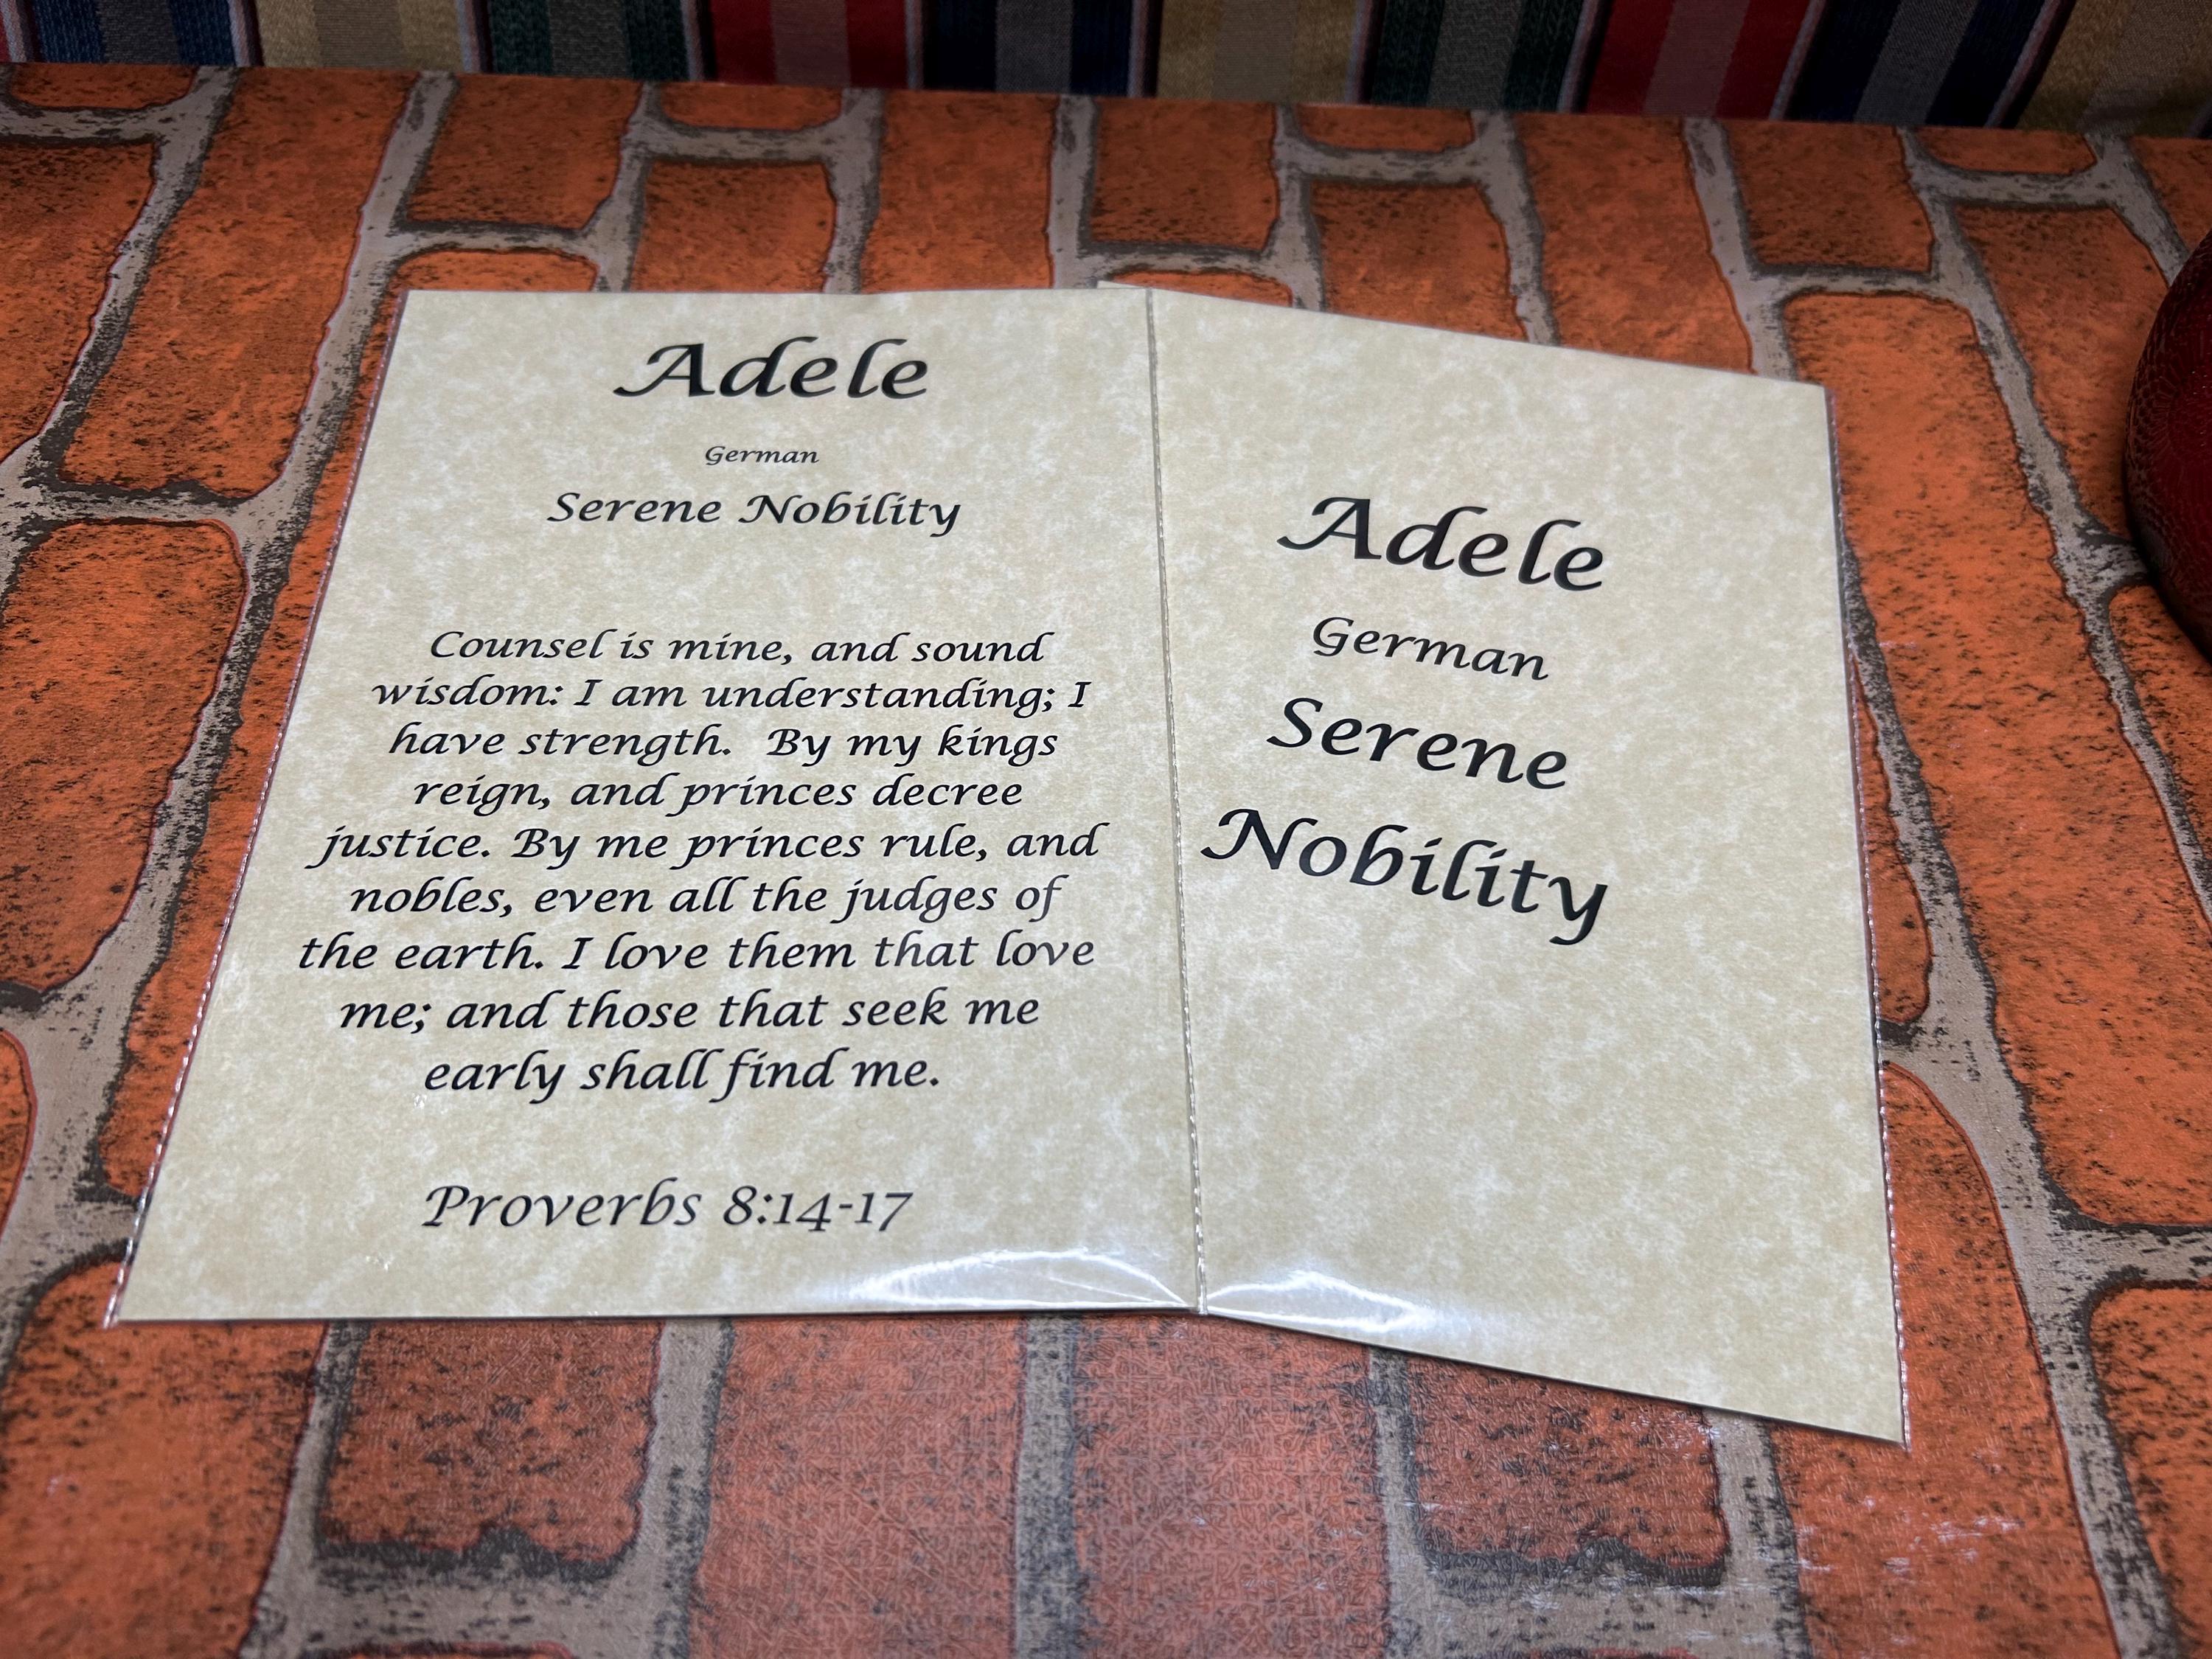 Adele
German
Serene Nobility
Counsel is mine, and sound
wisdom: I am understanding; I
have strength.  By my kings
reign, and princes decree
justice. By me princes rule, and
nobles, even all the judges of
the earth. I love them that love
me; and those that seek me
early shall find me.
Proverbs 8:14-17
Adele
German
Serene
Nobility